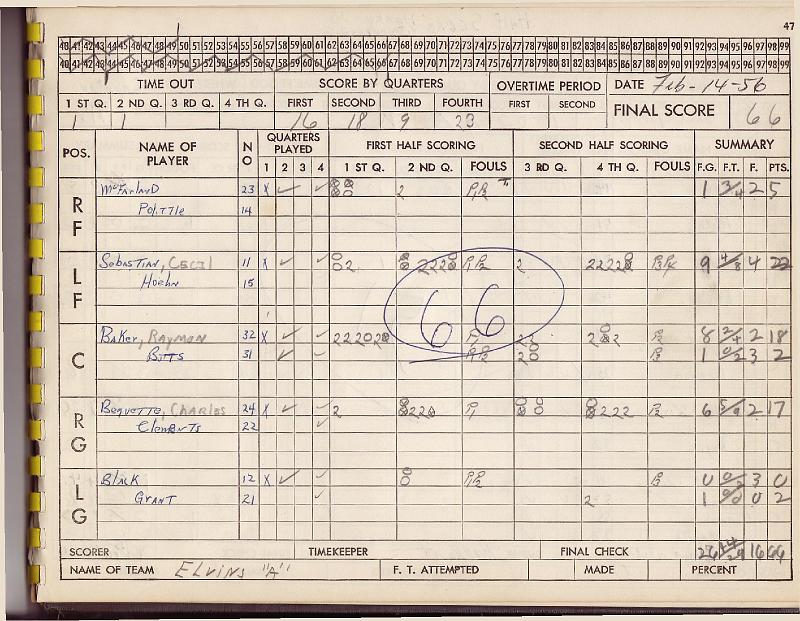 47
40 41 42 43 44 45 46 47 48 49 50 51 52 53 54 55 56 57 58 59 60 61 62 63 64 65 66 67 68 69 70 71 72 73 74 75 76 77 78 79 80 81 82 83 84 85 86 87 88 89 90 91 92 93 94 95 96 97 98 99
40 41 42 43 44 45 46 47 48 49 50 51 52 53 54 55 56 57 58 59 60 61 62 63 64 65 66 67 68 69 70 71 72 73 74 75 76 77 78 79 80 81 82 83 84 85 86 87 88 89 90 91 92 93 94 95 96 97 98 99
TIME OUT SCORE BY QUARTERS OVERTIME PERIOD DATE Feb-14-56
1 ST Q. 2 ND Q. 3 RD Q. 4 TH Q. FIRST SECOND THIRD FOURTH FIRST SECOND FINAL SCORE 66
1 1 16 18 9 23
POS. NAME OF PLAYER NO QUARTERS PLAYED FIRST HALF SCORING SECOND HALF SCORING SUMMARY
1 2 3 4 1 ST Q. 2 ND Q. FOULS 3 RD Q. 4 TH Q. FOULS F.G. F.T. F. PTS.
RF McFarland 23 X ✓ ✓ 2 P1 P2 T 1 3/4 2 5
Polittle 14
LF Sebastian, Cecil 11 X ✓ ✓ 2 P1 P2 2 P3 P4 9 4/8 4 22
Hoehn 15
66
C Baker, Raymon 32 X ✓ ✓ P1 P2 8 2/4 2 18
Bitts 31 ✓ ✓ P1 P2 20 P3 1 0/2 3 2
RG Bequette, Charles 24 X ✓ ✓ 2 P1 P2 6 5/9 2 17
Clements 22 ✓
LG Black 12 X ✓ ✓ P1 P2 P3 0 0/2 3 0
Grant 21 ✓ 2 1 0/0 0 2
SCORER TIMEKEEPER FINAL CHECK 26 14/29 16 66
NAME OF TEAM Elvins "A" F. T. ATTEMPTED MADE PERCENT